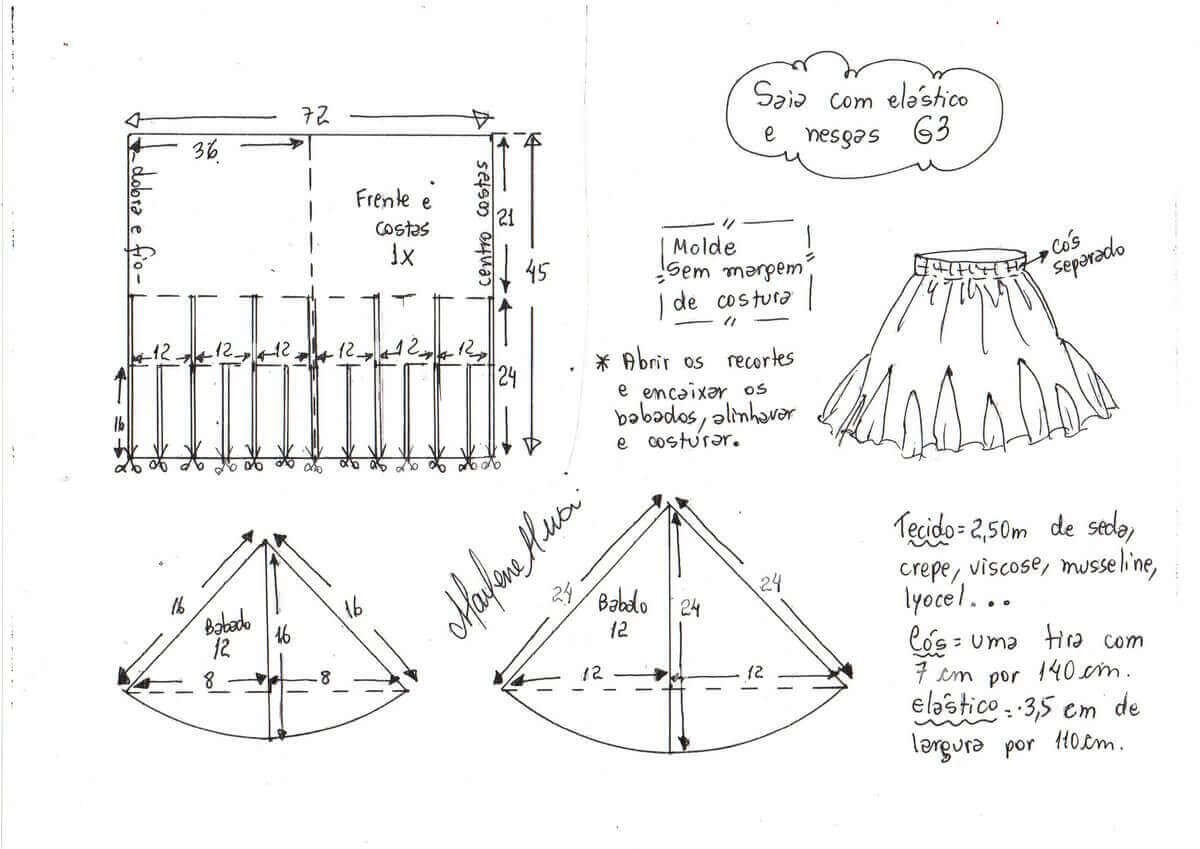 Saia com elástico
e nesgas G3
72
36
dobra e fio
Frente e
costas
1x
centro costas
21
45
12
12
12
12
12
12
24
16
Molde
Sem margem
de costura
* Abrir os recortes
e encaixar os
babados, alinhavar
e costurar.
cós
separado
16
16
Babado
12
16
8
8
Marlene Mukai
24
24
Babado
12
24
12
12
Tecido = 2,50m de seda,
crepe, viscose, musseline,
lyocel...
Cós = uma tira com
7 cm por 140 cm.
elástico = 3,5 cm de
largura por 110 cm.